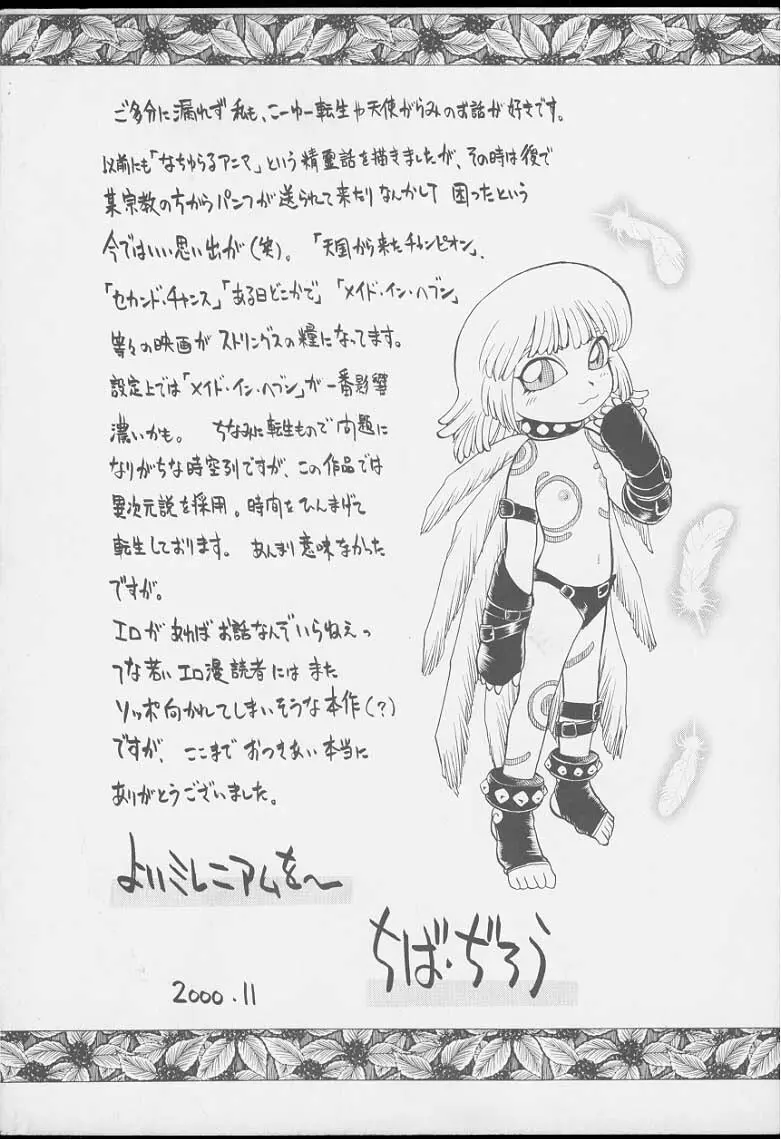 ご多分に漏れず私も、こーゆー転生や天使がらみのお話が好きです。
以前にも「なちゅらるアニマ」という精霊話を描きましたが、その時は後で
某宗教の方からパンフが送られて来たりなんかして 困ったという
今ではいい思い出が(笑)。「天国から来たチャンピオン」、
「セカンド・チャンス」「ある日どこかで」「メイド・イン・ヘブン」
等々の映画がストリングスの糧になってます。
設定上では「メイド・イン・ヘブン」が一番影響
濃いかも。 ちなみに転生もので問題に
なりがちな時空列ですが、この作品では
異次元説を採用。時間をひんまげて
転生しております。 あんまり意味なかった
ですが。
エロがあればお話なんでいらねえっ
てな若いエロ漫読者にはまた
ソッポ向かれてしまいそうな本作(?)
ですが、ここまでおつきあい本当に
ありがとうございました。
よいミレニアムを〜
ちば・ぢろう
2000.11